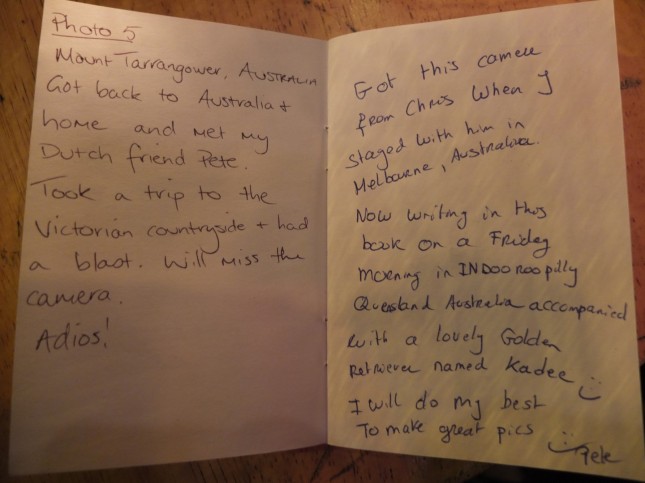 Photo 5
Mount Tarrangower, AUSTRALIA
Got back to Australia +
home and met my
Dutch friend Pete.
Took a trip to the
Victorian countryside + had
a blast. Will miss the
camera.
Adios!
Got this camera
from Chris When I
stayed with him in
Melbourne, Australia.
Now writing in this
book on a Friday
morning in INDOOROOPILLY
Queensland Australia accompanied
with a lovely Golden
Retriever named Kadee
I will do my best
To make great pics
Pete